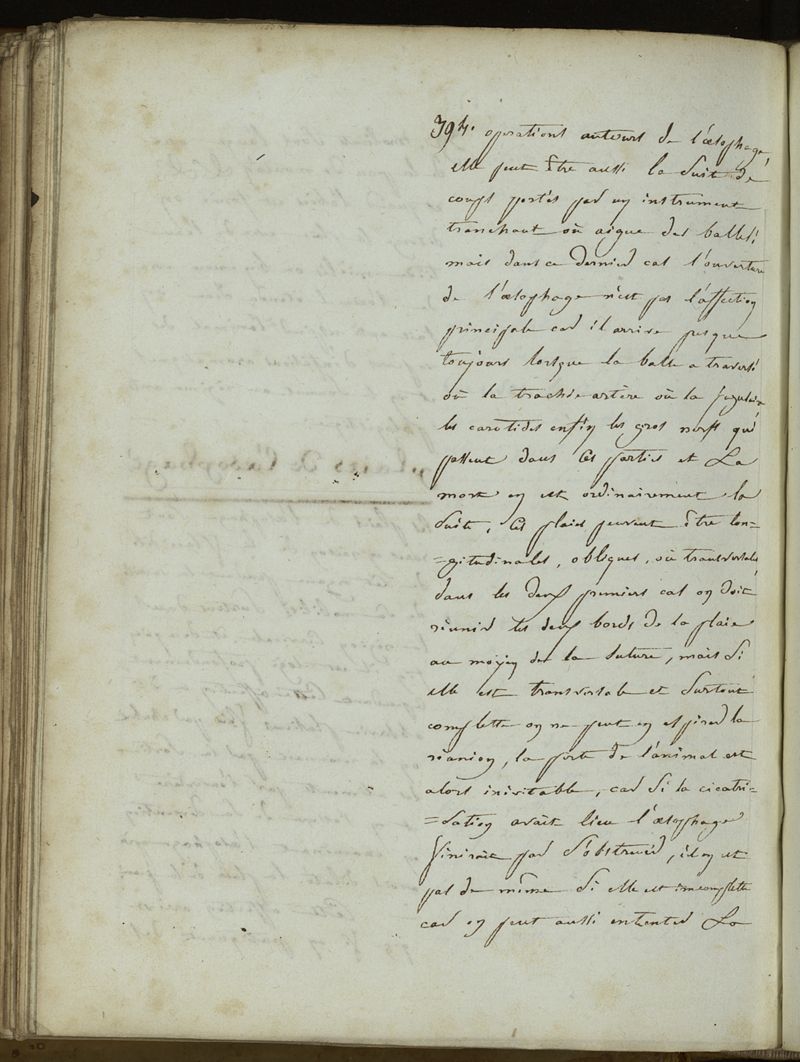 394. operations autours de l'œsophage
elle peut être aussi la suite de
coups portés par un instrument
tranchant où aigue des balles;
mais dans ce dernier cas l'ouverture
de l'œsophage n'est pas l'affection
principale car il arrive presque
toujours lorsque la balle a traversé
où la trachée artère où la jugulaire
les carotides enfin les gros nerfs qui
passent dans ces parties et La
mort en est ordinairement la
suite, Ces plaies peuvent être lon=
=gitudinales, obliques, où transversales
dans les deux premiers cas on doit
réunir les deux bords de la plaie
au moyen de la suture, mais Si
elle est transversale et surtout
complette on ne peut en espérer la
réunion, la perte de l'animal est
alors inévitable, car si la cicatri=
=sation avait lieu l'œsophage
finirait par s'obstruer, il en est
pas de même Si elle est incomplette
car on peut aussi en tenter La